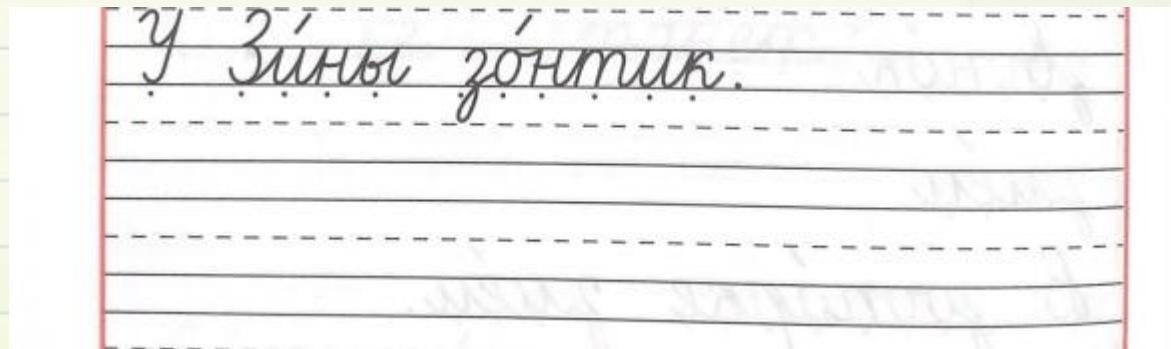 У Зи́ны зо́нтик.